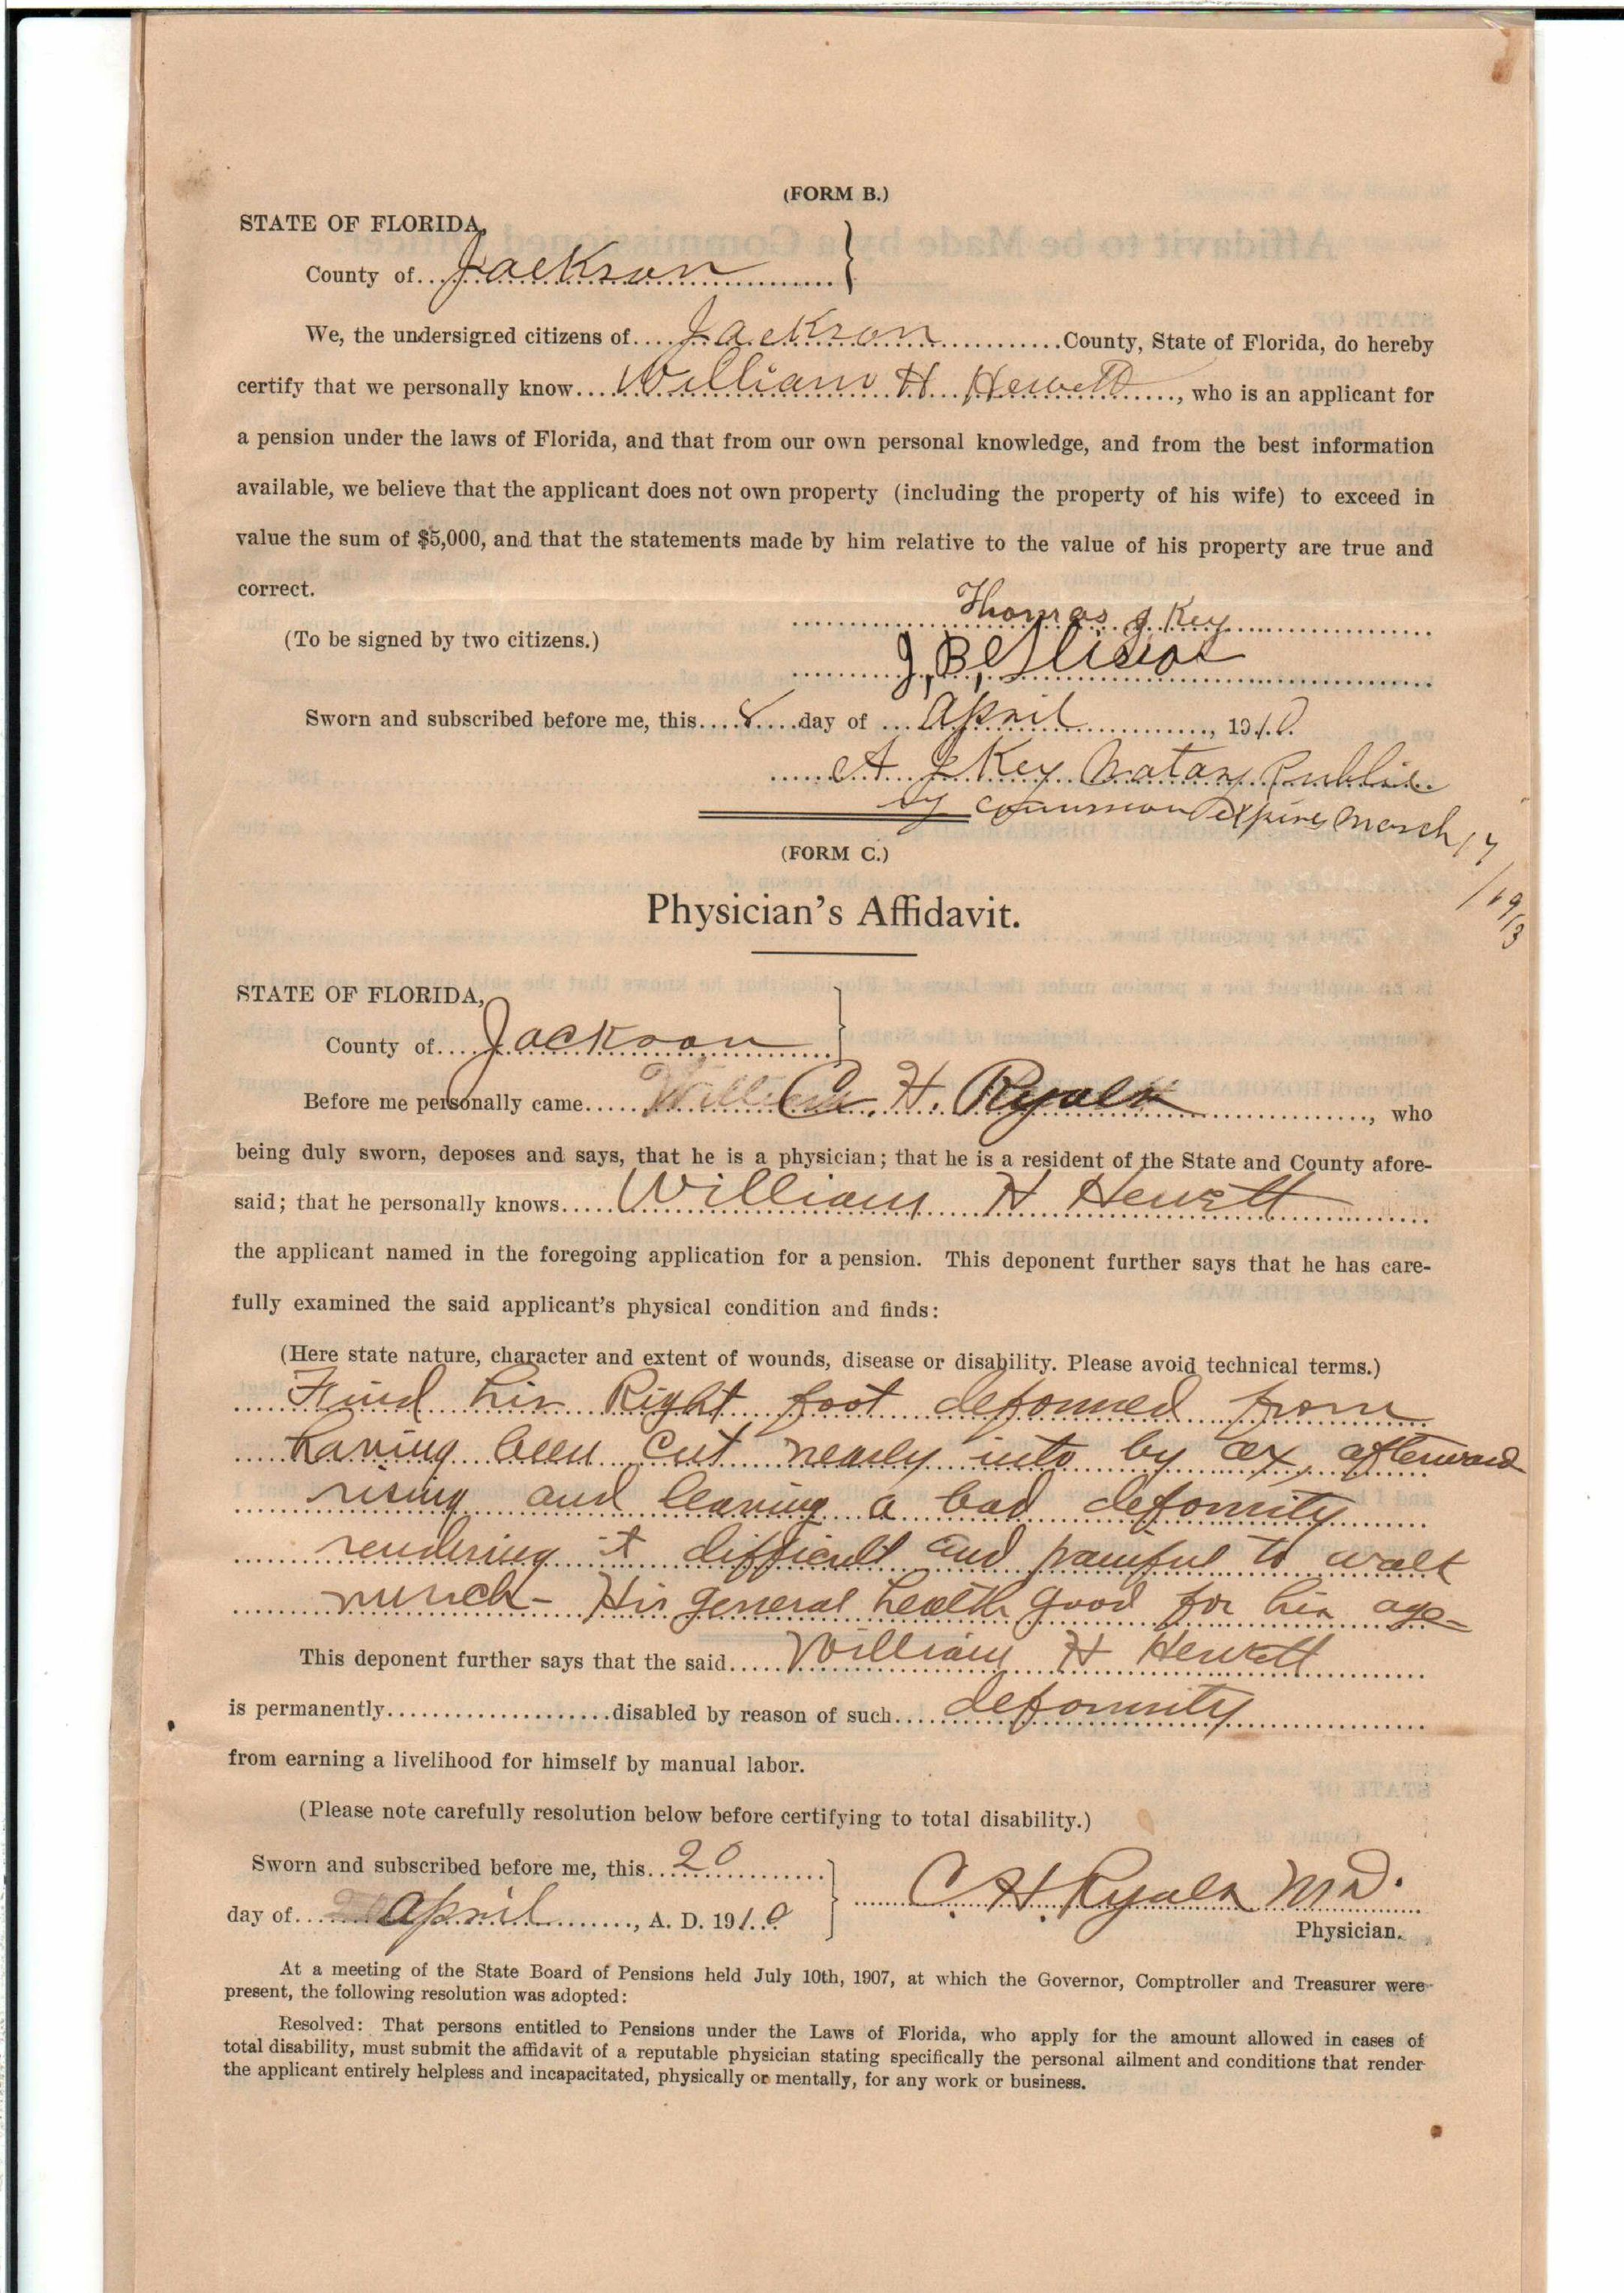 (FORM B.)
STATE OF FLORIDA,
County of Jackson
We, the undersigned citizens of Jackson County, State of Florida, do hereby
certify that we personally know William H. Hewett, who is an applicant for
a pension under the laws of Florida, and that from our own personal knowledge, and from the best information
available, we believe that the applicant does not own property (including the property of his wife) to exceed in
value the sum of $5,000, and that the statements made by him relative to the value of his property are true and
correct.
Thomas J Key
(To be signed by two citizens.)
J, B,
Sworn and subscribed before me, this 8 day of April, 1910
A J Key Notary Public
My commission Expires March 17
1913
(FORM C.)
Physician's Affidavit.
STATE OF FLORIDA,
County of Jackson
Before me personally came C. H. Ryals, who
being duly sworn, deposes and says, that he is a physician; that he is a resident of the State and County afore-
said; that he personally knows William H Hewett
the applicant named in the foregoing application for a pension. This deponent further says that he has care-
fully examined the said applicant's physical condition and finds:
(Here state nature, character and extent of wounds, disease or disability. Please avoid technical terms.)
Find his Right foot deformed from
having been cut nearly into by ax, afterward
rising and leaving a bad deformity
rendering it difficult and painful to walk
much - His general health good for his age-
This deponent further says that the said William H Hewett
is permanently disabled by reason of such deformity
from earning a livelihood for himself by manual labor.
(Please note carefully resolution below before certifying to total disability.)
Sworn and subscribed before me, this 20
day of April, A. D. 1910
C. H. Ryals M D.
Physician.
At a meeting of the State Board of Pensions held July 10th, 1907, at which the Governor, Comptroller and Treasurer were
present, the following resolution was adopted:
Resolved: That persons entitled to Pensions under the Laws of Florida, who apply for the amount allowed in cases of
total disability, must submit the affidavit of a reputable physician stating specifically the personal ailment and conditions that render
the applicant entirely helpless and incapacitated, physically or mentally, for any work or business.